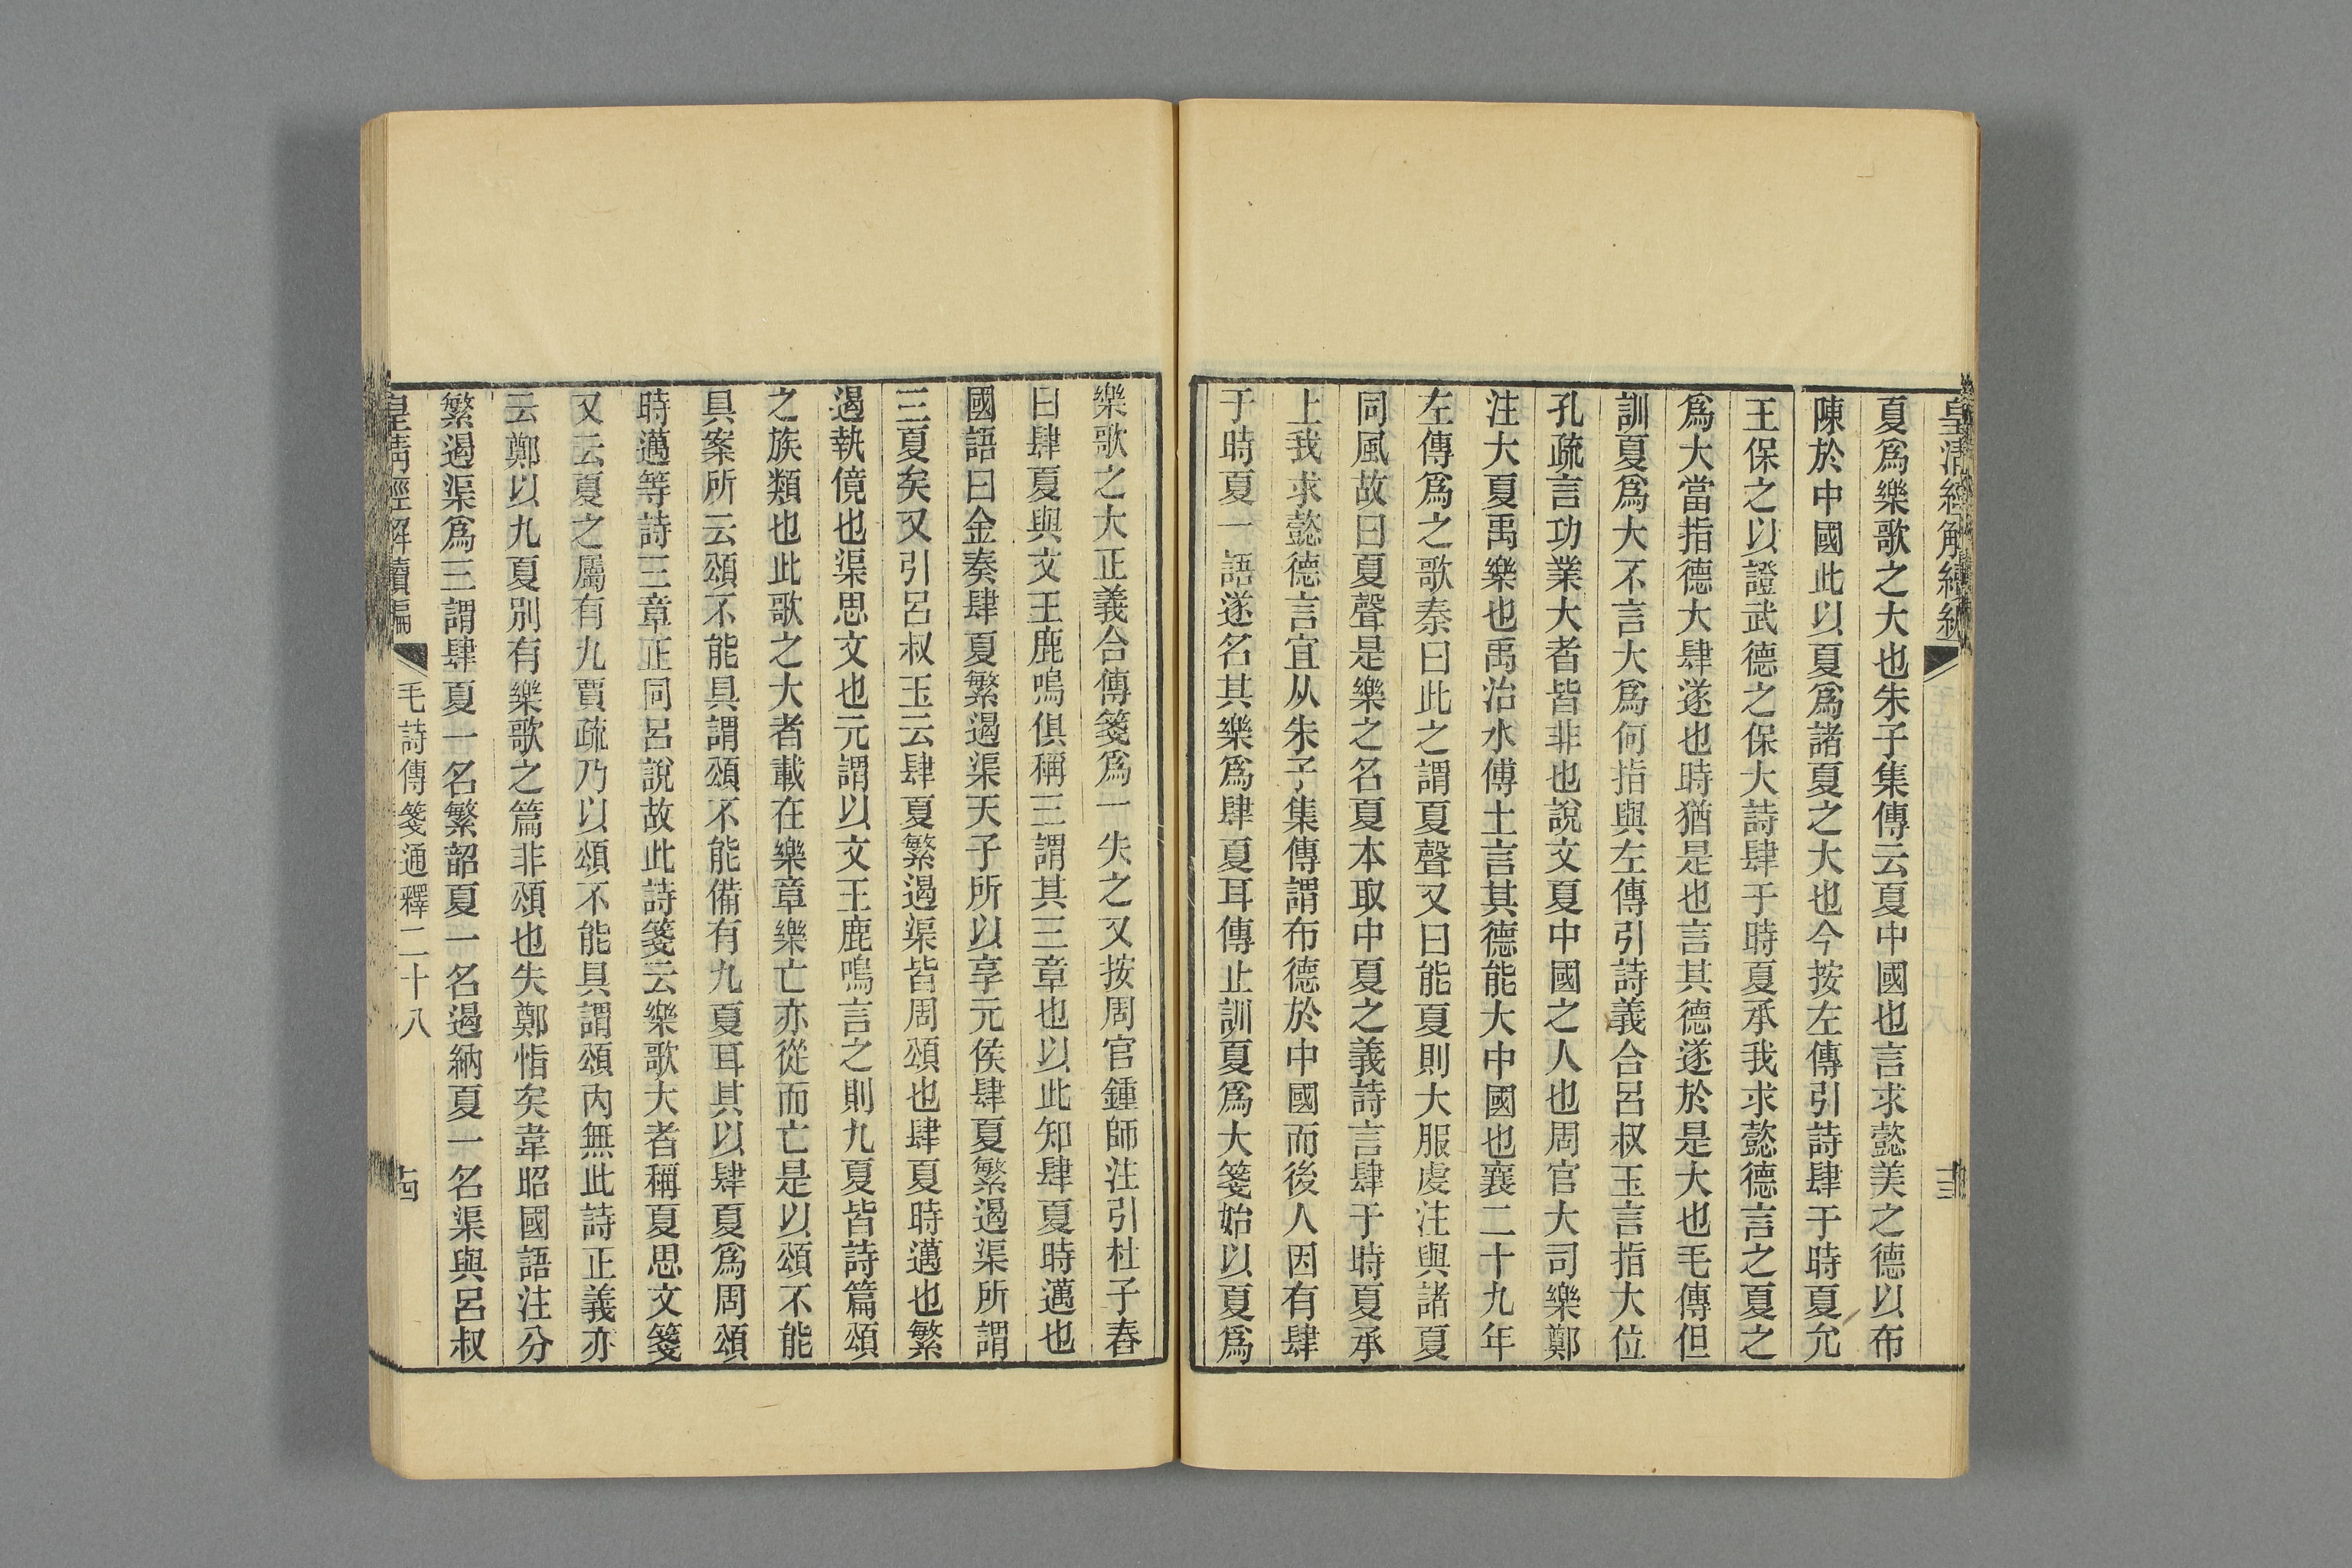 皇清經解續編
十三
夏爲樂歌之大也朱子集傳云夏中國也言求懿美之德以布
陳於中國此以夏爲諸夏之大也今按左傳引詩肆于時夏允
王保之以證武德之保大詩肆于時夏承我求懿德言之夏之
爲大當指德大肆遂也時猶是也言其德遂於是大也毛傳但
訓夏爲大不言大爲何指與左傳引詩義合呂叔玉言指大位
孔疏言功業大者皆非也說文夏中國之人也周官大司樂鄭
注大夏禹樂也禹治水傅土言其德能大中國也襄二十九年
左傳爲之歌秦曰此之謂夏聲又曰能夏則大服虔注與諸夏
同風故曰夏聲是樂之名夏本取中夏之義詩言肆于時夏承
上我求懿德言宜从朱子集傳謂布德於中國而後人因有肆
于時夏一語遂名其樂爲肆夏耳傳止訓夏爲大箋始以夏爲
樂歌之大正義合傳箋爲一失之又按周官鍾師注引杜子春
曰肆夏與文王鹿鳴俱稱三謂其三章也以此知肆夏時邁也
國語曰金奏肆夏繁遏渠天子所以享元侯肆夏繁遏渠所謂
三夏矣又引呂叔玉云肆夏繁遏渠皆周頌也肆夏時邁也繁
遏執傹也渠思文也元謂以文王鹿鳴言之則九夏皆詩篇頌
之族類也此歌之大者載在樂章樂亡亦從而亡是以頌不能
具案所云頌不能具謂頌不能備有九夏耳其以肆夏爲周頌
時邁等詩三章正同呂說故此詩箋云樂歌大者稱夏思文箋
又云夏之屬有九賈疏乃以頌不能具謂頌內無此詩正義亦
云鄭以九夏別有樂歌之篇非頌也失鄭恉矣韋昭國語注分
繁遏渠爲三謂肆夏一名繁韶夏一名遏納夏一名渠與呂叔
皇清經解續編
毛詩傳箋通釋二十八
十四